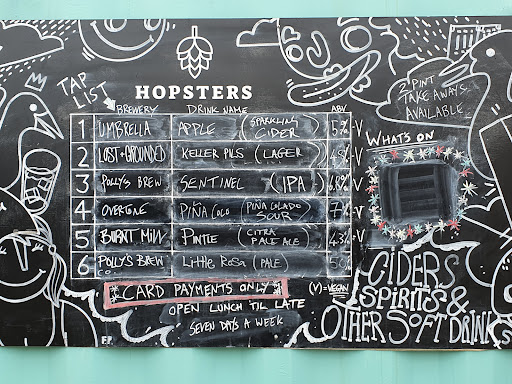 TAP LIST
HOPSTERS
BREWERY DRINK NAME ABV
1 UMBRELLA APPLE (SPARKLING CIDER) 5% -V
2 LOST + GROUNDED KELLER PILS (LAGER) 4.8% -V
3 POLLY'S BREW SENTINEL (IPA) 6.8% -V
4 OVERTONE PIÑA COLO (PIÑA COLADO SOUR) 7% -V
5 BURNT MILL PINTLE (CITRA PALE ALE) 4.3% =V
6 POLLY'S BREW CO. LITTLE ROSA (PALE)
CARD PAYMENTS ONLY
(V) = VEGAN
OPEN LUNCH TIL LATE
SEVEN DAYS A WEEK
2 PINT
TAKE AWAYS
AVAILABLE
WHAT'S ON
CIDERS
SPIRITS &
OTHER SOFT DRINKS